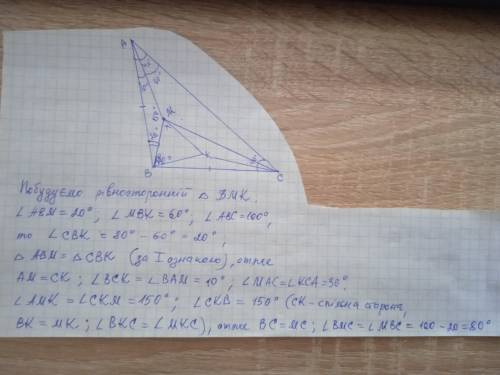 A
M
K
B
C
Побудуємо рівносторонній △ BMK.
∠ABM = 20°; ∠MBK = 60°; ∠ABC = 100°,
то ∠CBK = 80° - 60° = 20°,
△ ABM = △CBK (за I ознакою), отже
AM = CK; ∠BCK = ∠BAM = 10°; ∠MAC = ∠KCA = 30°
∠AMK = ∠CKM = 150°; ∠CKB = 150° (CK - спільна сторона,
BK = MK; ∠BKC = ∠MKC), отже BC = MC; ∠BMC = ∠MBC = 100 - 20 = 80°